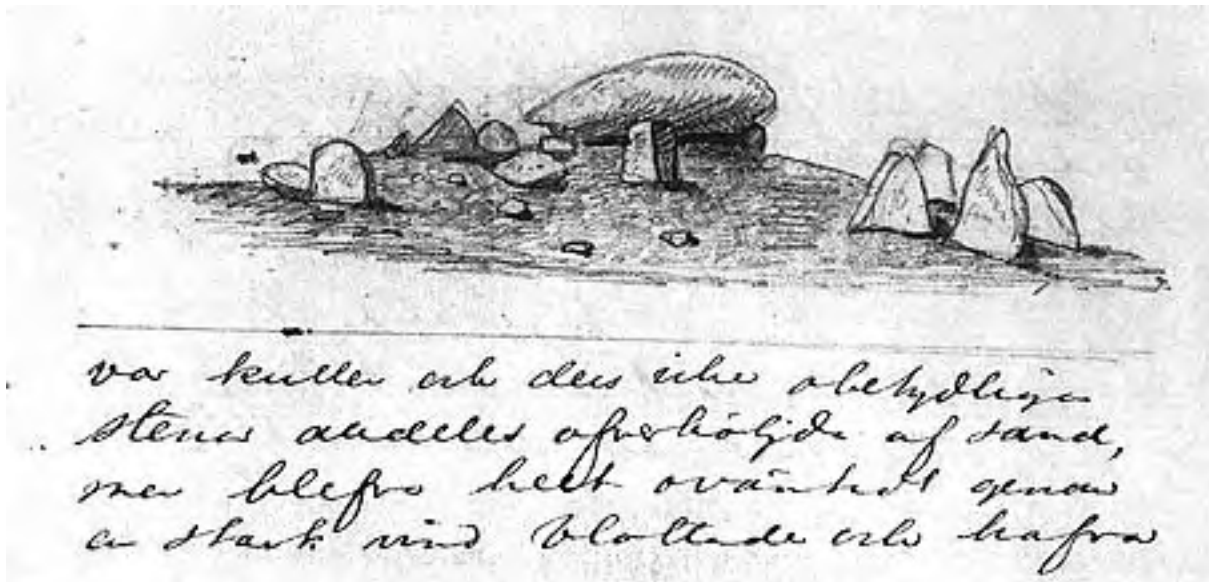 var kullen och dess icke obetydliga
stenar aldeles ofverhöljda af sand,
men blefvo helt oväntat genom
en stark vind blottade och hafva